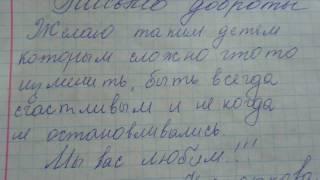 Письмо доброты
Желаю таким детям
которым сложно чтото
изменить, быть всегда
счастливым и не когда
и остановливались.
Мы вас любим!!!